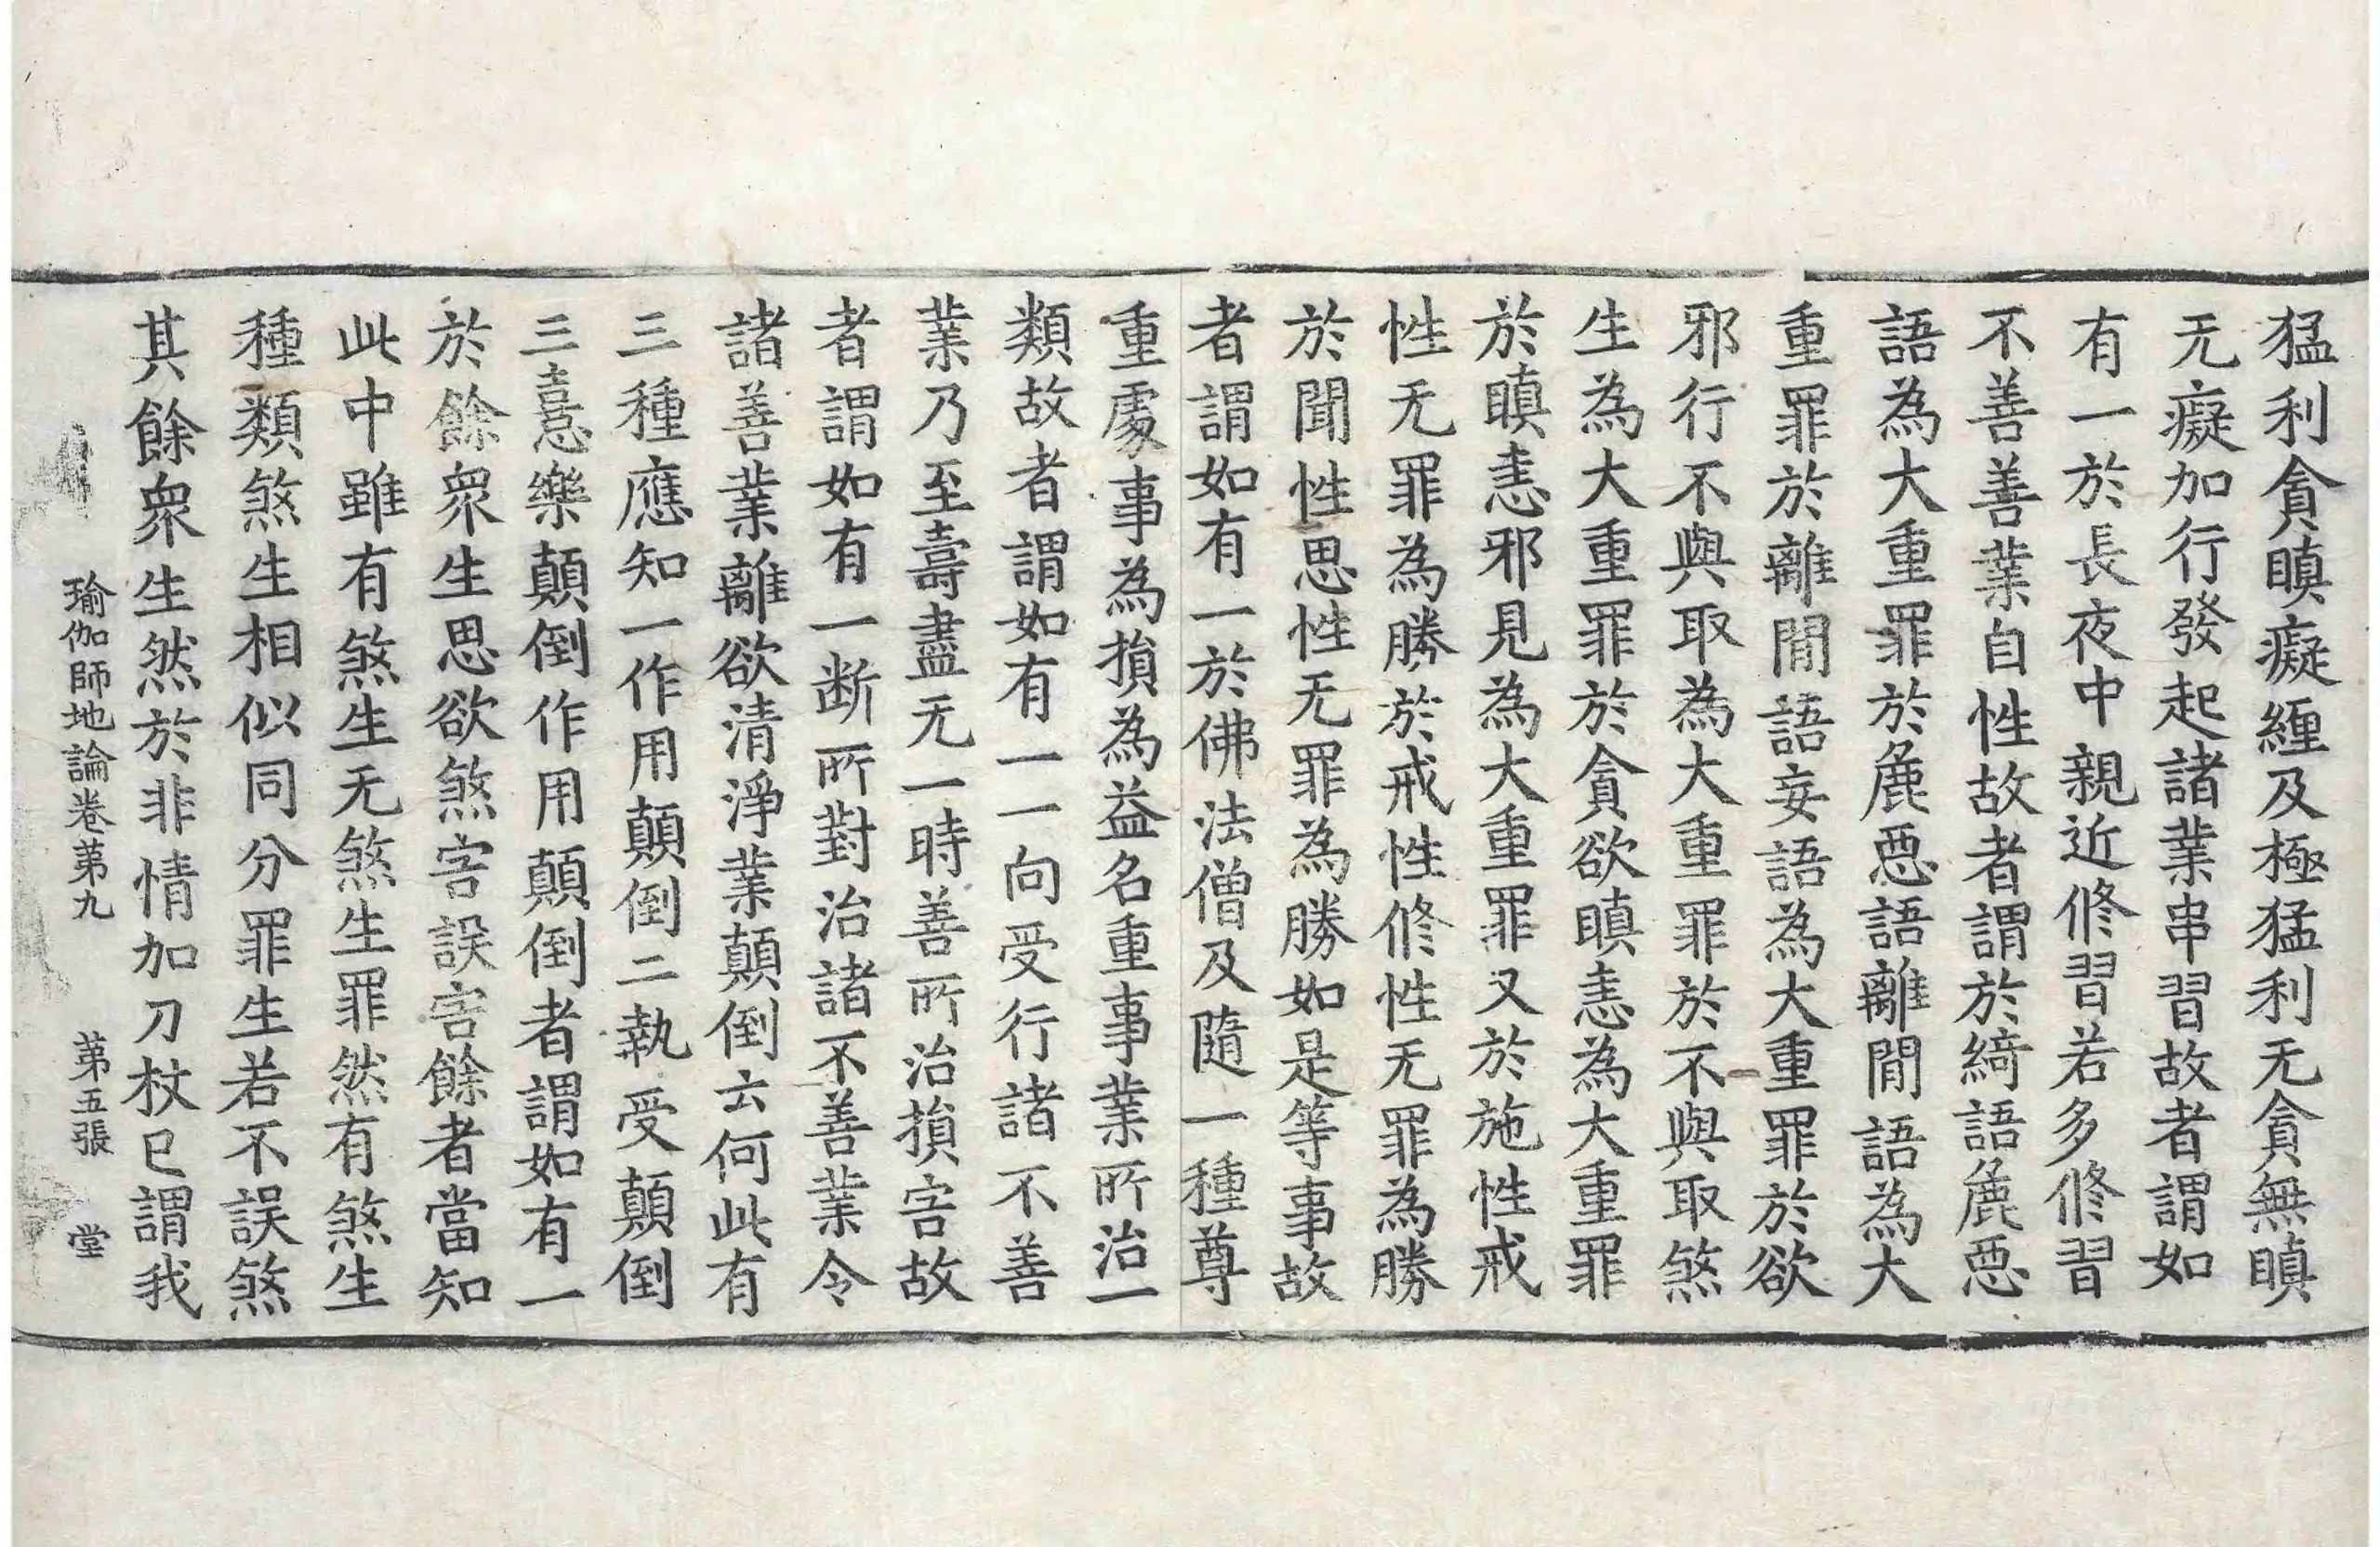 猛利貪瞋癡纏及極猛利无貪無瞋
无癡加行發起諸業串習故者謂如
有一於長夜中親近修習若多修習
不善善業自性故者謂於綺語麁惡
語為大重罪於麁惡語離間語為大
重罪於離間語妄語為大重罪於欲
邪行不與取為大重罪於不與取煞
生為大重罪於貪欲瞋恚為大重罪
於瞋恚邪見為大重罪又於施性戒
性无罪為勝於戒性修性无罪為勝
於聞性思性无罪為勝如是等事故
者謂如有一於佛法僧及隨一種尊
重處事為損為益名重事業所治一
類故者謂如有一一向受行諸不善
業乃至壽盡无一時善所治損害故
者謂如有一断所對治諸不善業令
諸善業離欲清淨業顛倒云何此有
三種應知一作用顛倒二執受顛倒
三憙樂顛倒作用顛倒者謂如有一
於餘眾生思欲煞害誤害餘者當知
此中雖有煞生无煞生罪然有煞生
種類煞生相似同分罪生若不誤煞
其餘眾生然於非情加刀杖已謂我
瑜伽師地論卷苐九 苐五張 堂